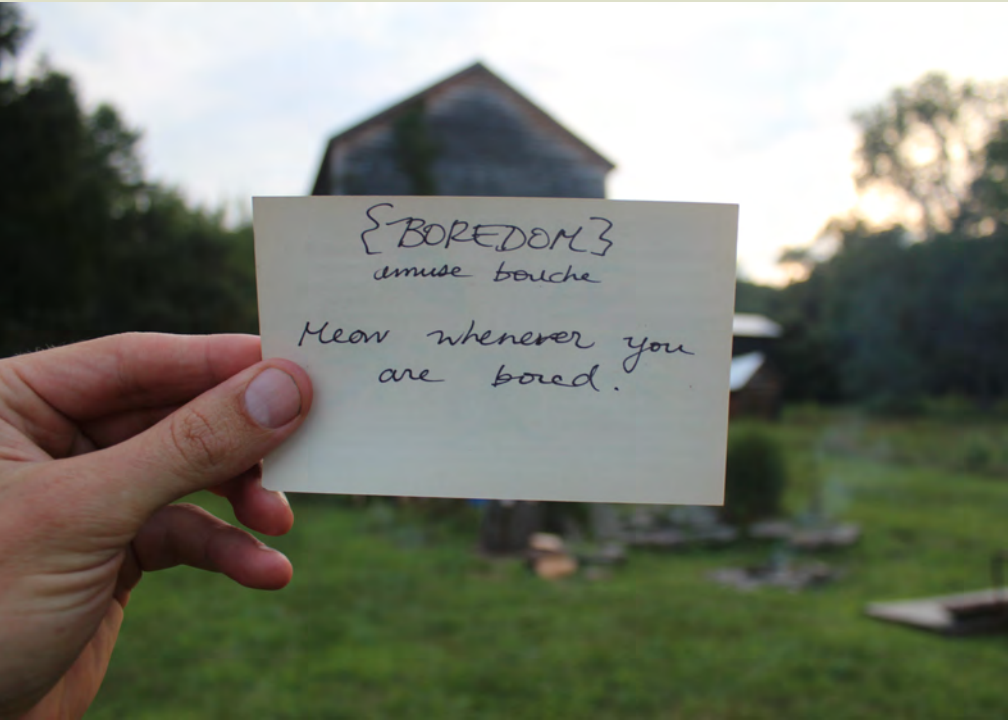 {BOREDOM}
amuse bouche
Meow whenever you
are bored.